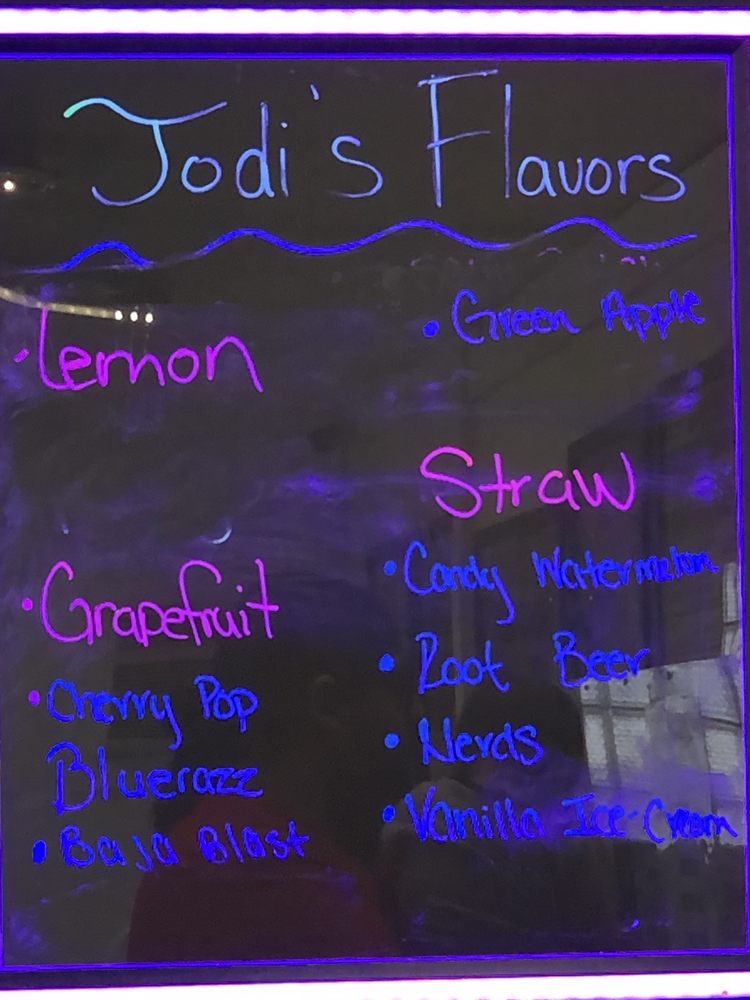 Jodi's Flavors
·Lemon
·Grapefruit
·Cherry Pop
Bluerazz
·Baja Blast
·Green Apple
Straw
·Candy Watermelon
·Root Beer
·Nerds
·Vanilla Ice-Cream